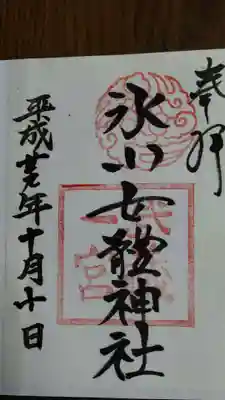 奉拝
武蔵
一宮
氷川女體神社
平成廿年十月十日